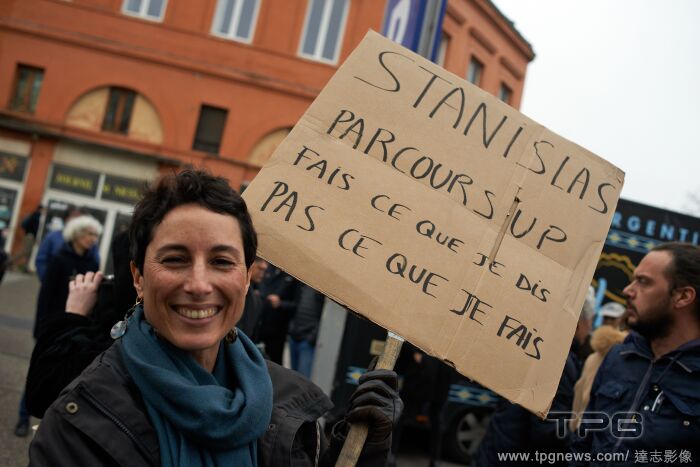 STANISLAS
PARCOURS UP
FAIS CE QUE JE DIS
PAS CE QUE JE FAIS
ARGENTI
TPG
www.tpgnews.com/ 達志影像